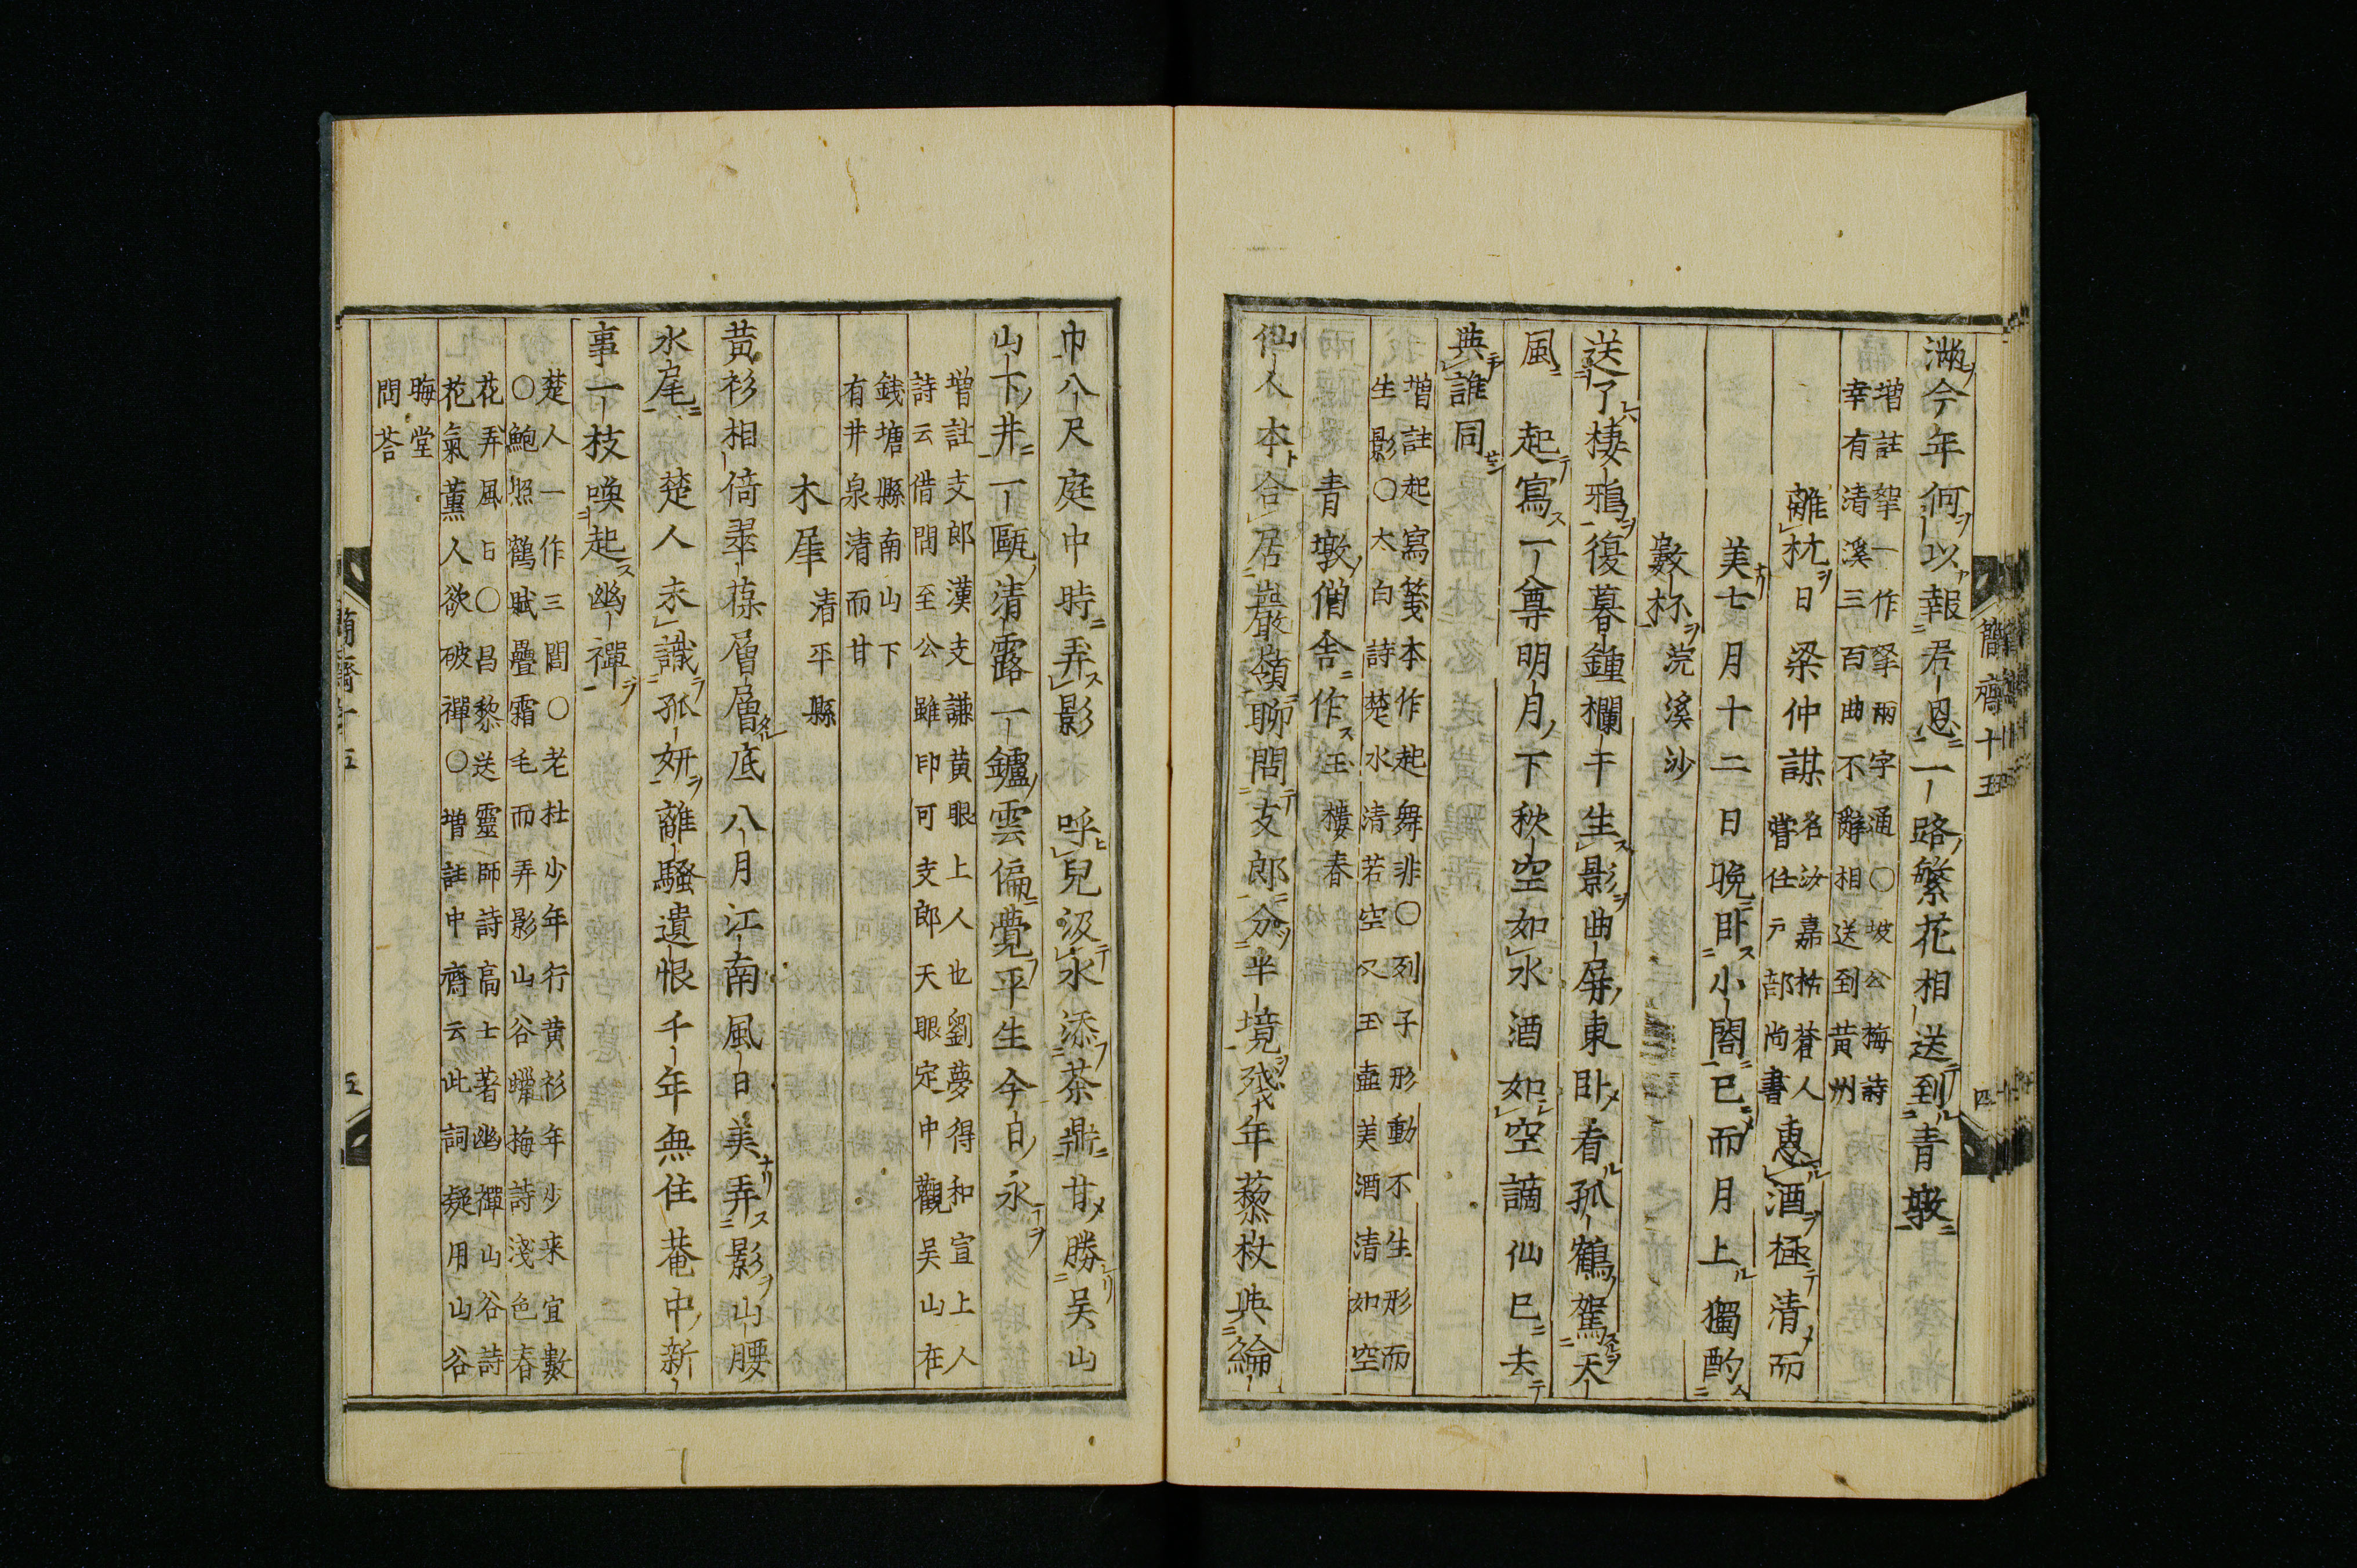 滿今年何以報君恩一路繁花相送到青墩
増註挐一作拏兩字通○坡公梅詩
幸有清溪三百曲不辭相送到黃州
離杭日梁仲謀名汝嘉栝蒼人嘗仕戸部尚書惠酒極清而
美七月十二日晩卧小閣已而月上獨酌
數杯 浣溪沙
送了棲鴉復暮鍾欄干生影曲屏東卧看孤鶴駕天
風 起寫一尊明月下秋空如水酒如空謫仙已去
與誰同
増註起寫箋本作起舞非○列子形動不生形而
生影○太白詩楚水清若空又玉壺美酒清如空
青墩僧舎作 玉樓春
仙人本合居巖嶺聊問支郎分半境殘年藜杖與綸
簡齋十五 四
巾八尺庭中時弄影 呼兒汲水添茶鼎甘勝吳山
山下井一甌清露一鑪雲偏覺平生今日永
増註支郎漢支謙黃眼上人也劉夢得和宣上人
詩云借問至公雖印可支郎天眼定中觀吳山在
錢塘縣南山下
有井泉清而甘
木犀 清平縣
黃衫相倚翠葆層層底八月江南風日美弄影山腰
水尾 楚人未識孤妍離騷遺恨千年無住菴中新
事一枝喚起幽禪
楚人一作三閭○老杜少年行黃衫年少来宜數
○鮑照鶴賦疊霜毛而弄影山谷蠟梅詩淺色春
花弄風日○昌黎送靈師詩高士著幽禪山谷詩
花氣薰人欲破禪○増註中齋云此詞疑用山谷
晦堂
問荅
簡齋十五 五